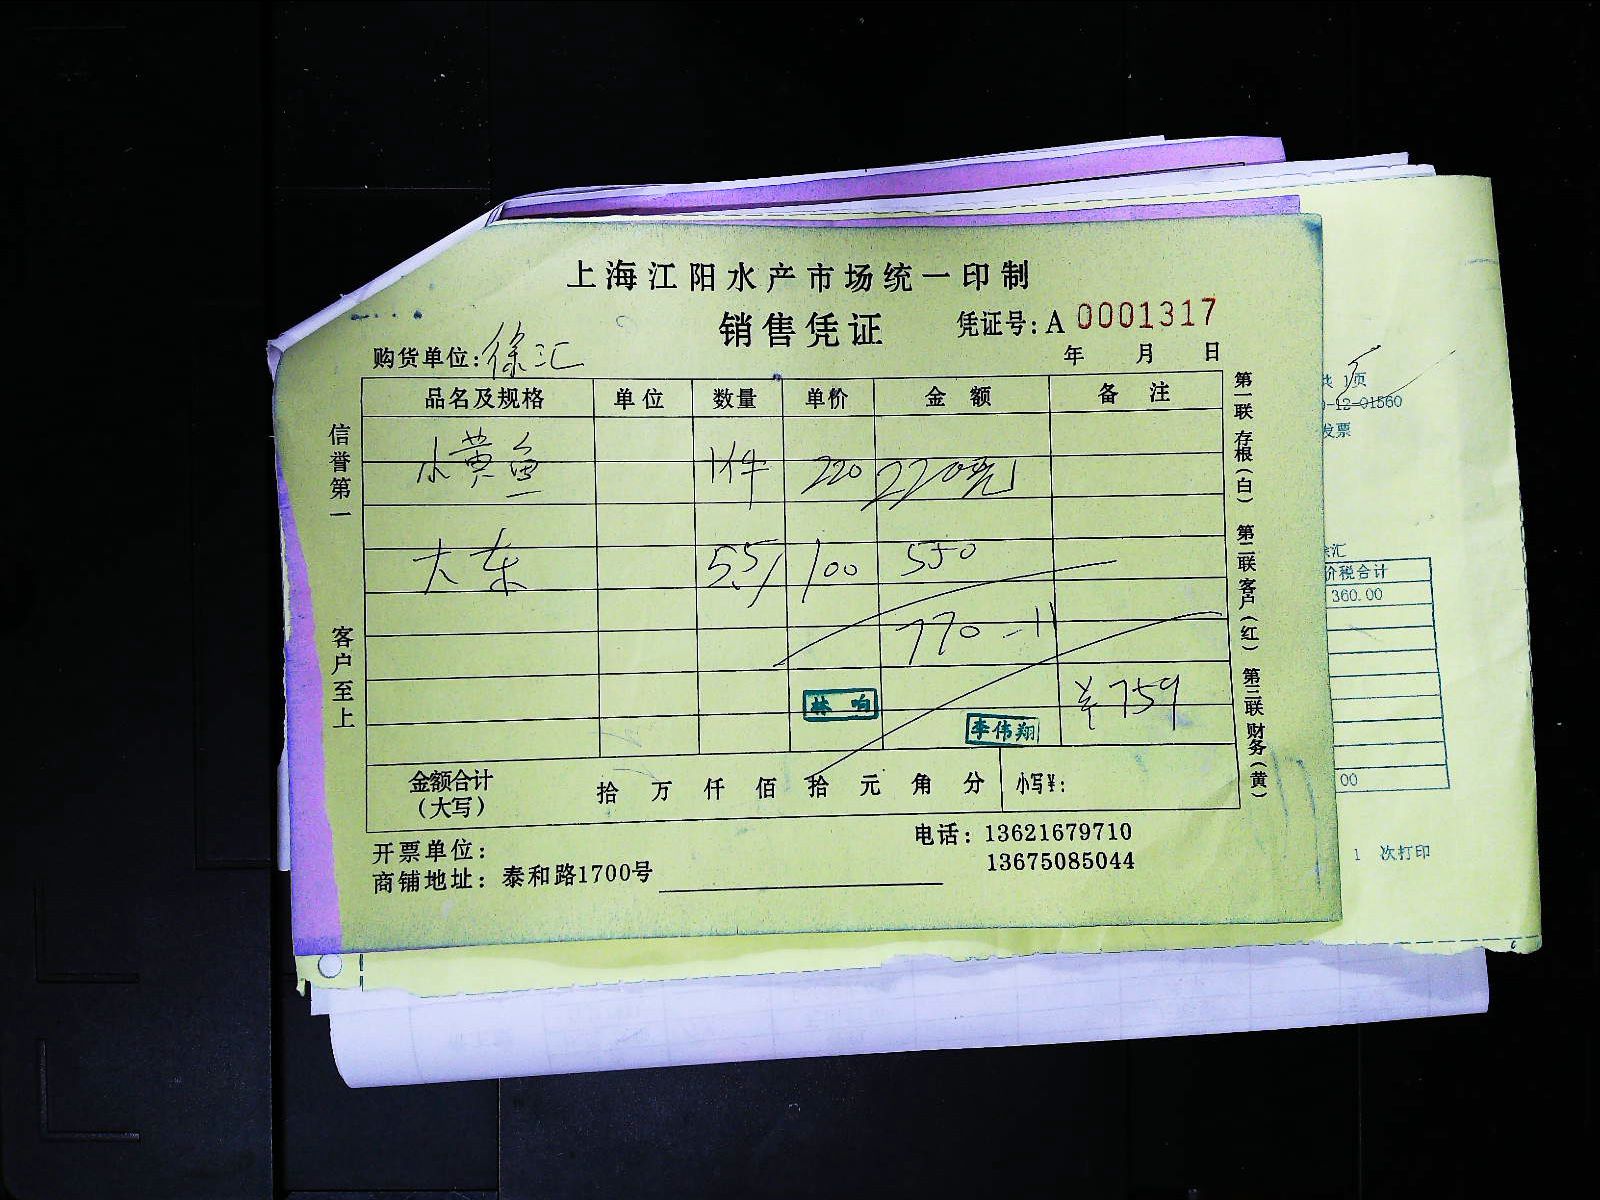 上海江阳水产市场统一印制
销售凭证 凭证号:A 0001317
购货单位:徐汇 年 月 日
品名及规格 单位 数量 单价 金额 备注
小黄鱼 1件 220 220元
大东 5.5 100 550
770-11
¥759
林响
李伟翔
金额合计(大写) 拾 万 仟 佰 拾 元 角 分 小写¥:
开票单位:
电话:13621679710
13675085044
商铺地址:泰和路1700号
信誉第一
客户至上
第一联 存根(白)
第二联 客户(红)
第三联 财务(黄)
共 1页
-12-01560
发票
徐汇
价税合计
360.00
00
1 次打印